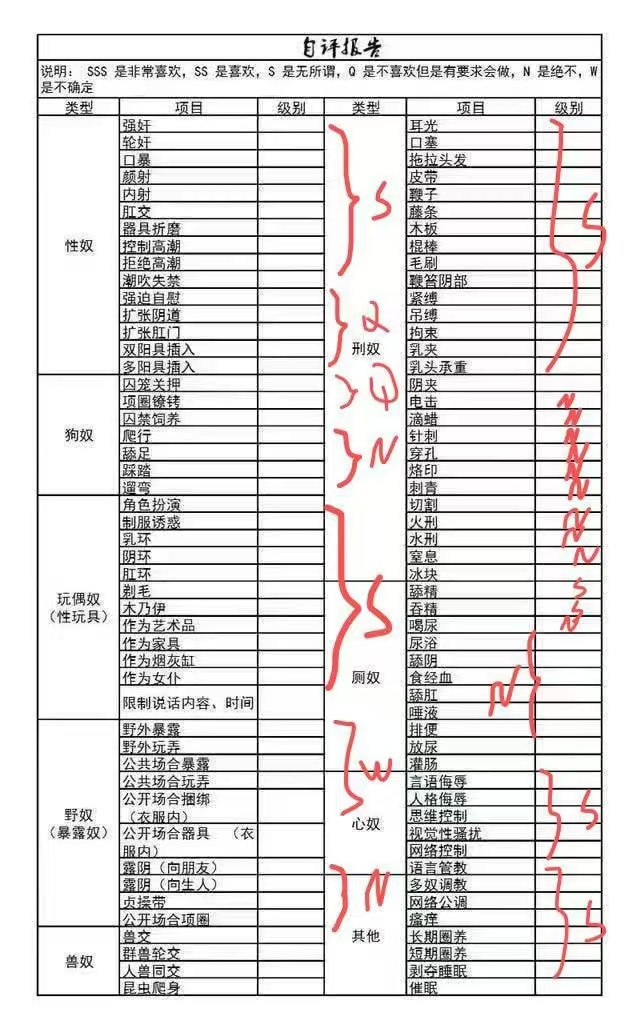 自评报告
说明: SSS 是非常喜欢, SS 是喜欢, S 是无所谓, Q 是不喜欢但是有要求会做, N 是绝不, W
是不确定
类型 项目 级别 类型 项目 级别
性奴
强奸
轮奸
口暴
颜射
内射
肛交
器具折磨
控制高潮
拒绝高潮
潮吹失禁
强迫自慰
扩张阴道
扩张肛门
双阳具插入
多阳具插入
S
Q
狗奴
囚笼关押
项圈镣铐
囚禁饲养
爬行
舔足
踩踏
遛弯
N
玩偶奴
(性玩具)
角色扮演
制服诱惑
乳环
阴环
肛环
剃毛
木乃伊
作为艺术品
作为家具
作为烟灰缸
作为女仆
限制说话内容、时间
S
野奴
(暴露奴)
野外暴露
野外玩弄
公共场合暴露
公共场合玩弄
公开场合捆绑
(衣服内)
公开场合器具 (衣
服内)
露阴(向朋友)
露阴(向生人)
贞操带
公开场合项圈
W
N
兽奴
兽交
群兽轮交
人兽同交
昆虫爬身
刑奴
耳光
口塞
拖拉头发
皮带
鞭子
藤条
木板
棍棒
毛刷
鞭笞阴部
紧缚
吊缚
拘束
乳夹
乳头承重
S
阴夹
电击
滴蜡 N
针刺 N
穿孔 N
烙印 N
刺青 N
切割
火刑 N
水刑 N
窒息 N
冰块
厕奴
舔精 S
吞精 S
喝尿 N
尿浴
舔阴
食经血
舔肛
唾液
排便
N
放尿
灌肠
心奴
言语侮辱
人格侮辱
思维控制
视觉性骚扰
网络控制
语言管教
S
其他
多奴调教
网络公调
瘙痒
长期圈养
短期圈养
剥夺睡眠
催眠
S